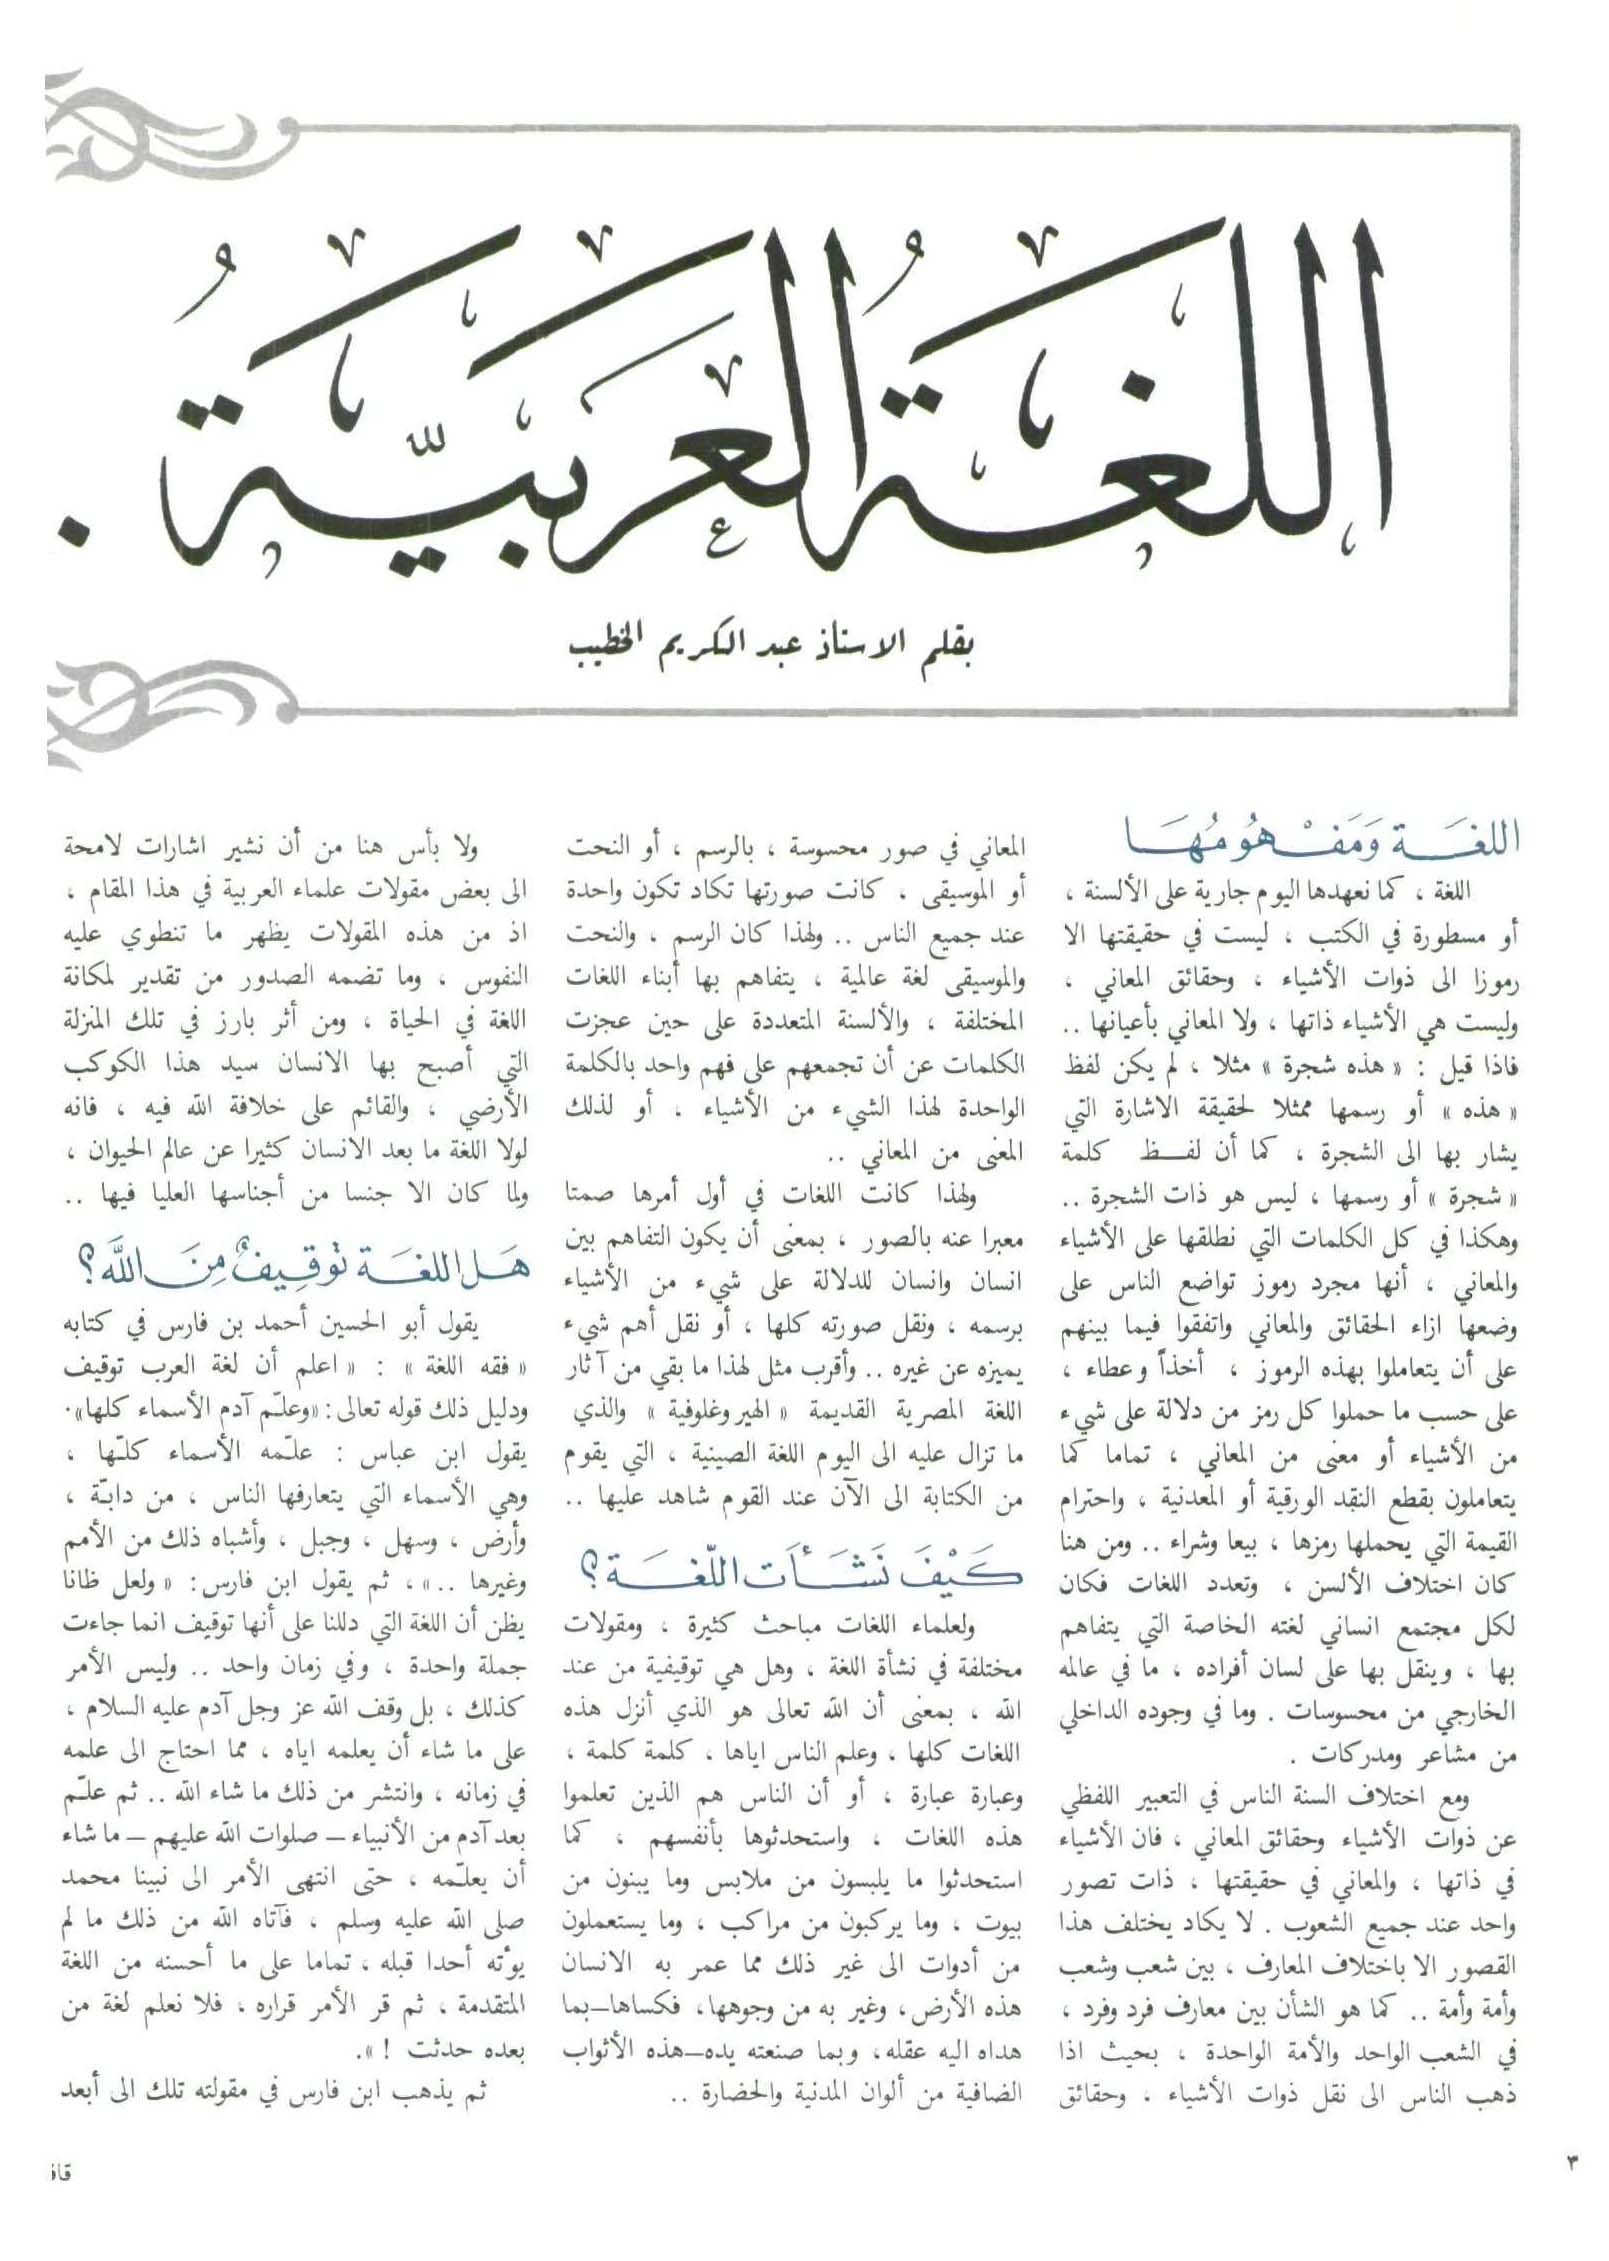 اللغة العربية .
بقلم الاستاذ عبد الكريم الخطيب
اللغة ومفهومها
اللغة ، كما نعهدها اليوم جارية على الألسنة ،
أو مسطورة في الكتب ، ليست في حقيقتها الا
رموزا الى ذوات الأشياء ، وحقائق المعاني ،
وليست هي الأشياء ذاتها ، ولا المعاني بأعيانها ..
فاذا قيل : « هذه شجرة » مثلا ، لم يكن لفظ
« هذه » أو رسمها ممثلا لحقيقة الاشارة التي
يشار بها الى الشجرة ، كما أن لفـظ كلمة
« شجرة » أو رسمها ، ليس هو ذات الشجرة ..
وهكذا في كل الكلمات التي نطلقها على الأشياء
والمعاني ، أنها مجرد رموز تواضع الناس على
وضعها ازاء الحقائق والمعاني واتفقوا فيما بينهم
على أن يتعاملوا بهذه الرموز ، أخذاً وعطاء ،
على حسب ما حملوا كل رمز من دلالة على شيء
من الأشياء أو معنى من المعاني ، تماما كما
يتعاملون بقطع النقد الورقية أو المعدنية ، واحترام
القيمة التي يحملها رمزها ، بيعا وشراء .. ومن هنا
كان اختلاف الألسن ، وتعدد اللغات فكان
لكل مجتمع انساني لغته الخاصة التي يتفاهم
بها ، وينقل بها على لسان أفراده ، ما في عالمه
الخارجي من محسوسات . وما في وجوده الداخلي
من مشاعر ومدركات .
ومع اختلاف السنة الناس في التعبير اللفظي
عن ذوات الأشياء وحقائق المعاني ، فان الأشياء
في ذاتها ، والمعاني في حقيقتها ، ذات تصور
واحد عند جميع الشعوب . لا يكاد يختلف هذا
القصور الا باختلاف المعارف ، بين شعب وشعب
وأمة وأمة .. كما هو الشأن بين معارف فرد وفرد ،
في الشعب الواحد والأمة الواحدة ، بحيث اذا
ذهب الناس الى نقل ذوات الأشياء ، وحقائق
المعاني في صور محسوسة ، بالرسم ، أو النحت
أو الموسيقى ، كانت صورتها تكاد تكون واحدة
عند جميع الناس .. ولهذا كان الرسم ، والنحت
والموسيقى لغة عالمية ، يتفاهم بها أبناء اللغات
المختلفة ، والألسنة المتعددة على حين عجزت
الكلمات عن أن تجمعهم على فهم واحد بالكلمة
الواحدة لهذا الشيء من الأشياء ، أو لذلك
المعنى من المعاني ..
ولهذا كانت اللغات في أول أمرها صمتا
معبرا عنه بالصور ، بمعنى أن يكون التفاهم بين
انسان وانسان للدلالة على شيء من الأشياء
برسمه ، ونقل صورته كلها ، أو نقل أهم شيء
يميزه عن غيره .. وأقرب مثل لهذا ما بقي من آثار
اللغة المصرية القديمة « الهيروغلوفية » والذي
ما تزال عليه الى اليوم اللغة الصينية ، التي يقوم
من الكتابة الى الآن عند القوم شاهد عليها ..
كيف نشأت اللّغة ؟
ولعلماء اللغات مباحث كثيرة ، ومقولات
مختلفة في نشأة اللغة ، وهل هي توقيفية من عند
الله ، بمعنى أن الله تعالى هو الذي أنزل هذه
اللغات كلها ، وعلم الناس اياها ، كلمة كلمة ،
وعبارة عبارة ، أو أن الناس هم الذين تعلموا
هذه اللغات ، واستحدثوها بأنفسهم ، كما
استحدثوا ما يلبسون من ملابس وما يبنون من
بيوت ، وما يركبون من مراكب ، وما يستعملون
من أدوات الى غير ذلك مما عمر به الانسان
هذه الأرض، وغير به من وجوهها، فكساها–بما
هداه اليه عقله، وبما صنعته يده–هذه الأثواب
الضافية من ألوان المدنية والحضارة ..
ولا بأس هنا من أن نشير اشارات لامحة
الى بعض مقولات علماء العربية في هذا المقام ،
اذ من هذه المقولات يظهر ما تنطوي عليه
النفوس ، وما تضمه الصدور من تقدير لمكانة
اللغة في الحياة ، ومن أثر بارز في تلك المنزلة
التي أصبح بها الانسان سيد هذا الكوكب
الأرضي ، والقائم على خلافة الله فيه ، فانه
لولا اللغة ما بعد الانسان كثيرا عن عالم الحيوان ،
ولما كان الا جنسا من أجناسها العليا فيها ..
هل اللغة توقيفٌ من الله ؟
يقول أبو الحسين أحمد بن فارس في كتابه
« فقه اللغة » : « اعلم أن لغة العرب توقيف
ودليل ذلك قوله تعالى: «وعلّم آدم الأسماء كلها».
يقول ابن عباس : علّمه الأسماء كلّها ،
وهي الأسماء التي يتعارفها الناس ، من دابّة ،
وأرض ، وسهل ، وجبل ، وأشباه ذلك من الأمم
وغيرها ..» ، ثم يقول ابن فارس: « ولعل ظانا
يظن أن اللغة التي دللنا على أنها توقيف انما جاءت
جملة واحدة ، وفي زمان واحد .. وليس الأمر
كذلك ، بل وقف الله عز وجل آدم عليه السلام ،
على ما شاء أن يعلمه اياه ، مما احتاج الى علمه
في زمانه ، وانتشر من ذلك ما شاء الله .. ثم علّم
بعد آدم من الأنبياء – صلوات الله عليهم – ما شاء
أن يعلّمه ، حتى انتهى الأمر الى نبينا محمد
صلى الله عليه وسلم ، فآتاه الله من ذلك ما لم
يؤته أحدا قبله ، تماما على ما أحسنه من اللغة
المتقدمة ، ثم قر الأمر قراره ، فلا نعلم لغة من
بعده حدثت ! ».
ثم يذهب ابن فارس في مقولته تلك الى أبعد
٣